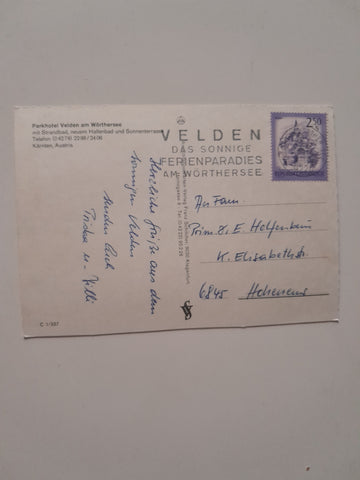 Parkhotel Velden am Wörthersee
mit Strandbad, neuem Hallenbad und Sonnenterrasse
Telefon (0 42 74) 22 98 / 24 06
Kärnten, Austria
Herzliche Grüße aus dem
sonnigen Velden
senden Euch
u. Willi
C 1/937
VELDEN
DAS SONNIGE
FERIENPARADIES
AM WÖRTHERSEE
2.50
An Fam.
Prim. & E. Helfenbein
K. Elisabethstr.
6845 Hohenems